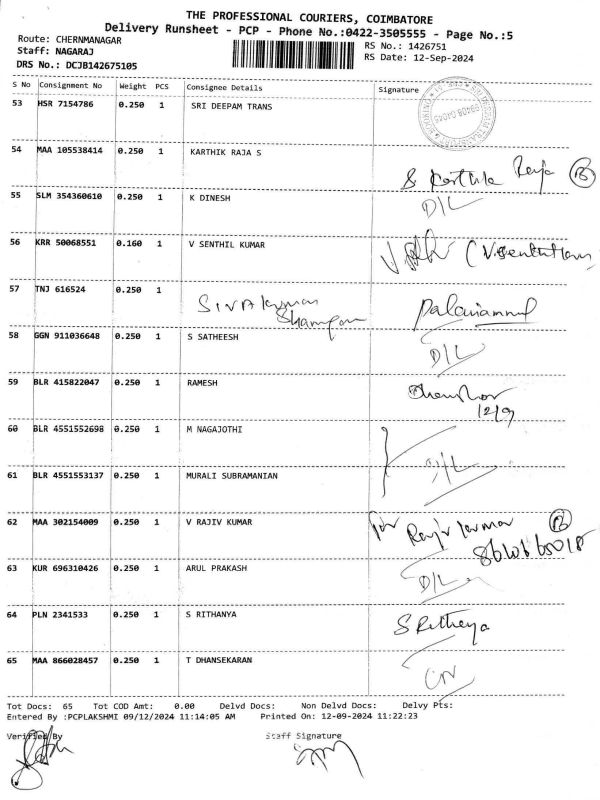 THE PROFESSIONAL COURIERS, COIMBATORE
Delivery Runsheet - PCP - Phone No.:0422-3505555 - Page No.:5
Route: CHERNMANAGAR
RS No.: 1426751
Staff: NAGARAJ
RS Date: 12-Sep-2024
DRS No.: DCJB142675105
S No Consignment No Weight PCS Consignee Details Signature
53 HSR 7154786 0.250 1 SRI DEEPAM TRANS
54 MAA 105538414 0.250 1 KARTHIK RAJA S
55 SLM 354360610 0.250 1 K DINESH D/L
56 KRR 50068551 0.160 1 V SENTHIL KUMAR
57 TNJ 616524 0.250 1 Sivakumar
58 GGN 911036648 0.250 1 S SATHEESH D/L
59 BLR 415822047 0.250 1 RAMESH
12/9
60 BLR 4551552698 0.250 1 M NAGAJOTHI
D/L
61 BLR 4551553137 0.250 1 MURALI SUBRAMANIAN
62 MAA 302154009 0.250 1 V RAJIV KUMAR
63 KUR 696310426 0.250 1 ARUL PRAKASH D/L
64 PLN 2341533 0.250 1 S RITHANYA
65 MAA 866028457 0.250 1 T DHANSEKARAN
Tot Docs: 65 Tot COD Amt: 0.00 Delvd Docs: Non Delvd Docs: Delvy Pts:
Entered By :PCPLAKSHMI 09/12/2024 11:14:05 AM Printed On: 12-09-2024 11:22:23
Verified By Staff Signature